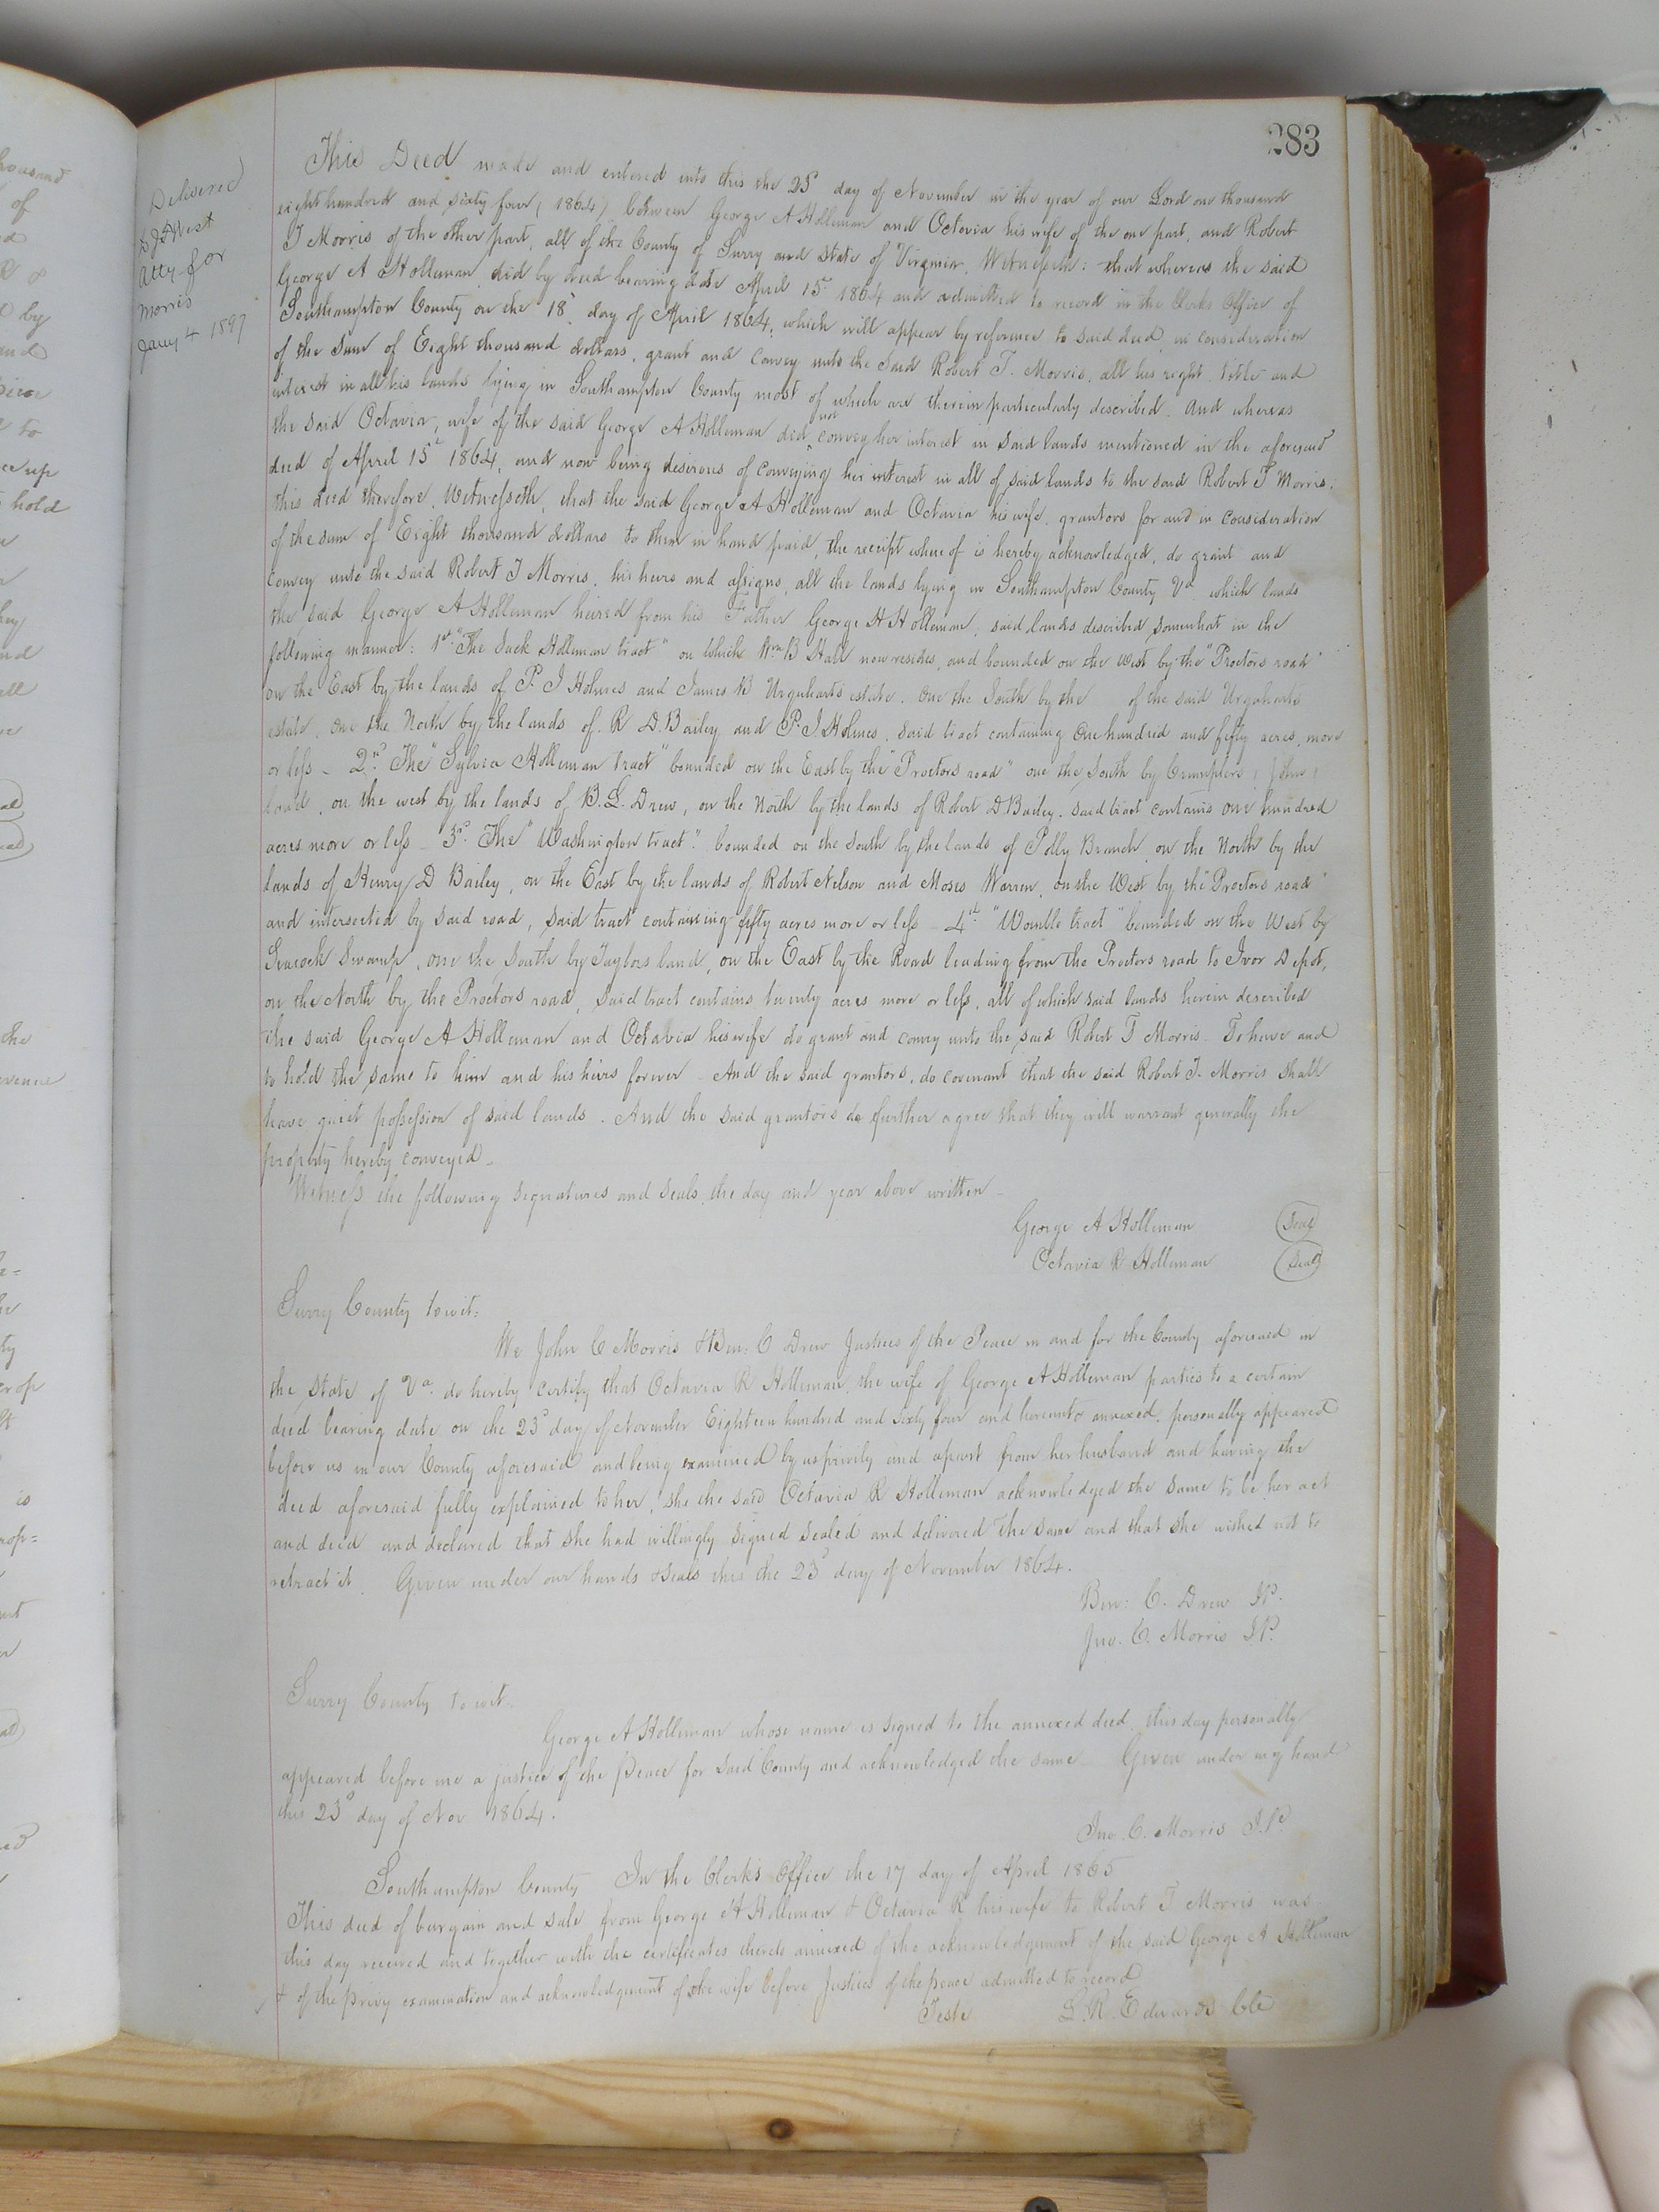 283
Delivered
to J F West
Atty for
Morris
Jany 4 1897
This Deed made and entered into this the 23d day of November in the year of our Lord one thousand
eight hundred and sixty four (1864) between George A Holleman and Octavia his wife of the one part, and Robert
T Morris of the other part, all of the County of Surry and State of Virginia, Witnesseth: that whereas the said
George A Holleman did by deed bearing date April 15th 1864 and admitted to record in the Clerks Office of
Southampton County on the 18th day of April 1864, which will appear by reference to said deed, in consideration
of the sum of Eight thousand dollars, grant and convey unto the said Robert T. Morris, all his right, title and
interest in all his lands lying in Southampton County most of which are therein particularly described. And whereas
the said Octavia, wife of the said George A Holleman did not convey her interest in said lands mentioned in the aforesaid
deed of April 15th 1864, and now being desirous of conveying her interest in all of said lands to the said Robert T Morris,
this deed therefore, Witnesseth, that the said George A Holleman and Octavia his wife, grantors for and in consideration
of the sum of Eight thousand dollars to them in hand paid, the receipt whereof is hereby acknowledged, do grant and
convey unto the said Robert T Morris, his heirs and assigns, all the lands lying in Southampton County Va. which lands
the said George A Holleman heired from his Father George H Holleman, said lands described somewhat in the
following manner: 1st "The Jack Holleman tract" on which Wm B Hall now resides, and bounded on the West by the "Proctors road"
on the East by the lands of P. J Holmes and James B Urquharts estate. One the South by the of the said Urquharts
estate, one the North by the lands of R D. Bailey and P. J. Holmes, said tract containing One hundred and fifty acres, more
or less - 2nd The "Sylvia Holleman tract" bounded on the East by the "Proctors road" one the South by Crumplers (John)
land, on the west by the lands of B. L. Drew, on the North by the lands of Robert D Bailey. said tract contains one hundred
acres more or less - 3d The "Washington tract" bounded on the South by the lands of Polly Branch, on the North by the
lands of Henry D Bailey, on the East by the lands of Robert Nelson and Moses Warren, on the West by the "Proctors road"
and intersected by said road, said tract containing fifty acres more or less - 4th "Womble tract" bounded on the West by
Seacock Swamp, one the South by Taylors land, on the East by the Road leading from the Proctors road to Ivor Depot,
on the North by the Proctors road, said tract contains twenty acres more or less, all of which said lands herein described
the said George A Holleman and Octavia his wife do grant and convey unto the said Robert T Morris - To have and
to hold the same to him and his heirs forever - And the said grantors, do covenant that the said Robert T. Morris shall
have quiet possession of said lands. And the said grantors do further agree that they will warrant generally the
property hereby conveyed -
Witness the following signatures and seals, the day and year above written -
George A Holleman (Seal)
Octavia R Holleman (Seal)
Surry County to wit:
We John C Morris & Ben: C Drew Justices of the Peace in and for the County aforesaid in
the State of Va. do hereby certify that Octavia R Holleman, the wife of George A Holleman parties to a certain
deed bearing date on the 23d day of November Eighteen hundred and sixty four and hereunto annexed, personally appeared
before us in our County aforesaid and being examined by us privily and apart from her husband and having the
deed aforesaid fully explained to her, she the said Octavia R Holleman acknowledged the same to be her act
and deed and declared that she had willingly signed sealed and delivered the same and that she wished not to
retract it. Given under our hands & seals this the 23d day of November 1864.
Ben: C. Drew JP.
Jno. C. Morris J.P.
Surry County to wit.
George A Holleman whose name is signed to the annexed deed, this day personally
appeared before me a justice of the Peace for said County and acknowledged the same - Given under my hand
this 23d day of Nov 1864.
Jno. C. Morris J.P.
Southampton County In the Clerk's Office the 17 day of April 1865
This deed of bargain and sale from George A Holleman & Octavia R his wife to Robert T Morris was
this day received and together with the certificates thereto annexed of the acknowledgement of the said George A Holleman
& of the privy examination and acknowledgement of the wife before Justices of the peace admitted to record
Teste L. R. Edwards Clk